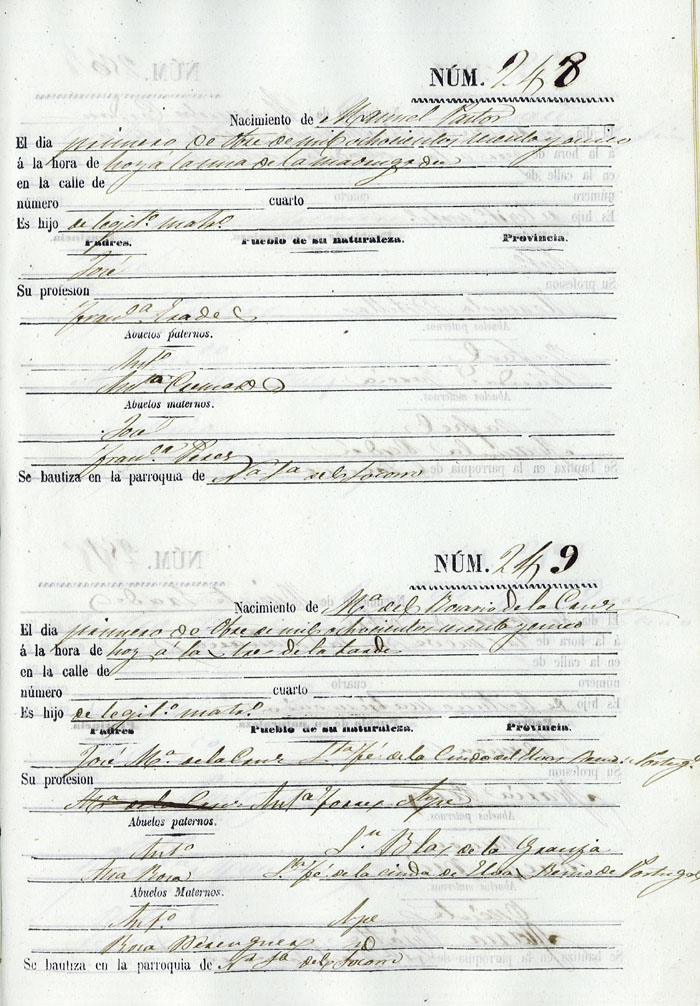 NÚM. 248
Nacimiento de Manuel Pastor
El dia primero de Obre de mil ochocientos
á la hora de hoy a la una de la madrugada
en la calle de
número cuarto
Es hijo de legit.o matr.o
Padres. Pueblo de su naturaleza. Provincia.
José
Su profesion
Fran.ca
Abuelos paternos.
Ant.o
Ant.a
Abuelos maternos.
José
Fran.ca Perez
Se bautiza en la parroquia de N.a S.a del Socorro
NÚM. 249
Nacimiento de M.a del Rosario de la Cruz
El dia primero de Obre de mil ochocientos
á la hora de hoy a las tres de la tarde
en la calle de
número cuarto
Es hijo de legit.o matr.o
Padres Pueblo de su naturaleza. Provincia.
José M.a de la Cruz S.ta Fé de la Ciudad de Portug.l
Su profesion
Ant.a Torres Aspe
Abuelos paternos.
Ant.o Sn Blas de la Granja
Ana Rosa S.ta Fé de la ciuda de Elvas Reino de Portugal
Abuelos Maternos.
Ant.o Aspe
Rosa Berenguer id
Se bautiza en la parroquia de N.a S.a del Socorro